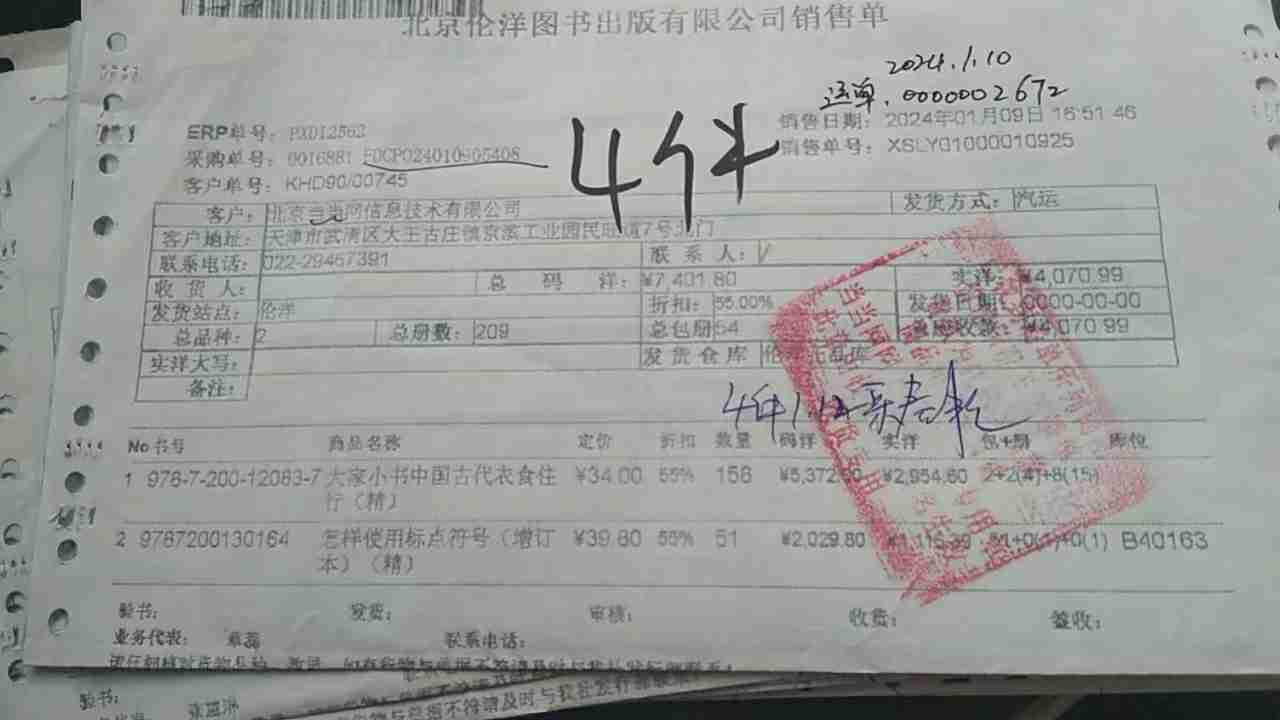 北京伦洋图书出版有限公司销售单
2024.1.10
运单.0000002672
ERP单号: PXD12562
销售日期: 2024年01月09日 16:51:46
采购单号: 0016881 EOCPO24010905408
4件
销售单号: XSLY01000010925
客户单号: KHD90/00745
客户: 北京当当网信息技术有限公司 发货方式: 汽运
客户地址: 天津市武清区大王古庄镇京滨工业园民旺道7号北门
联系电话: 022-29457391 联系人:
收货人: 总码洋: ¥7,401.80 实洋: ¥4,070.99
发货站点: 伦洋 折扣: 55.00% 发货日期: 0000-00-00
总品种: 2 总册数: 209 总包册 54 总应收款: ¥4,070.99
实洋大写: 发货仓库
备注:
4件1.12
No 书号 商品名称 定价 折扣 数量 码洋 实洋 包+册 库位
1 978-7-200-12083-7 大家小书中国古代衣食住 ¥34.00 55% 158 ¥5,372.00 ¥2,954.60 2+2(4)+8(15)
行（精）
2 9787200130164 怎样使用标点符号（增订 ¥39.80 55% 51 ¥2,029.80 B40163
本）（精）
验书: 发货: 审核: 收货: 签收:
业务代表: 章磊 联系电话:
验书: